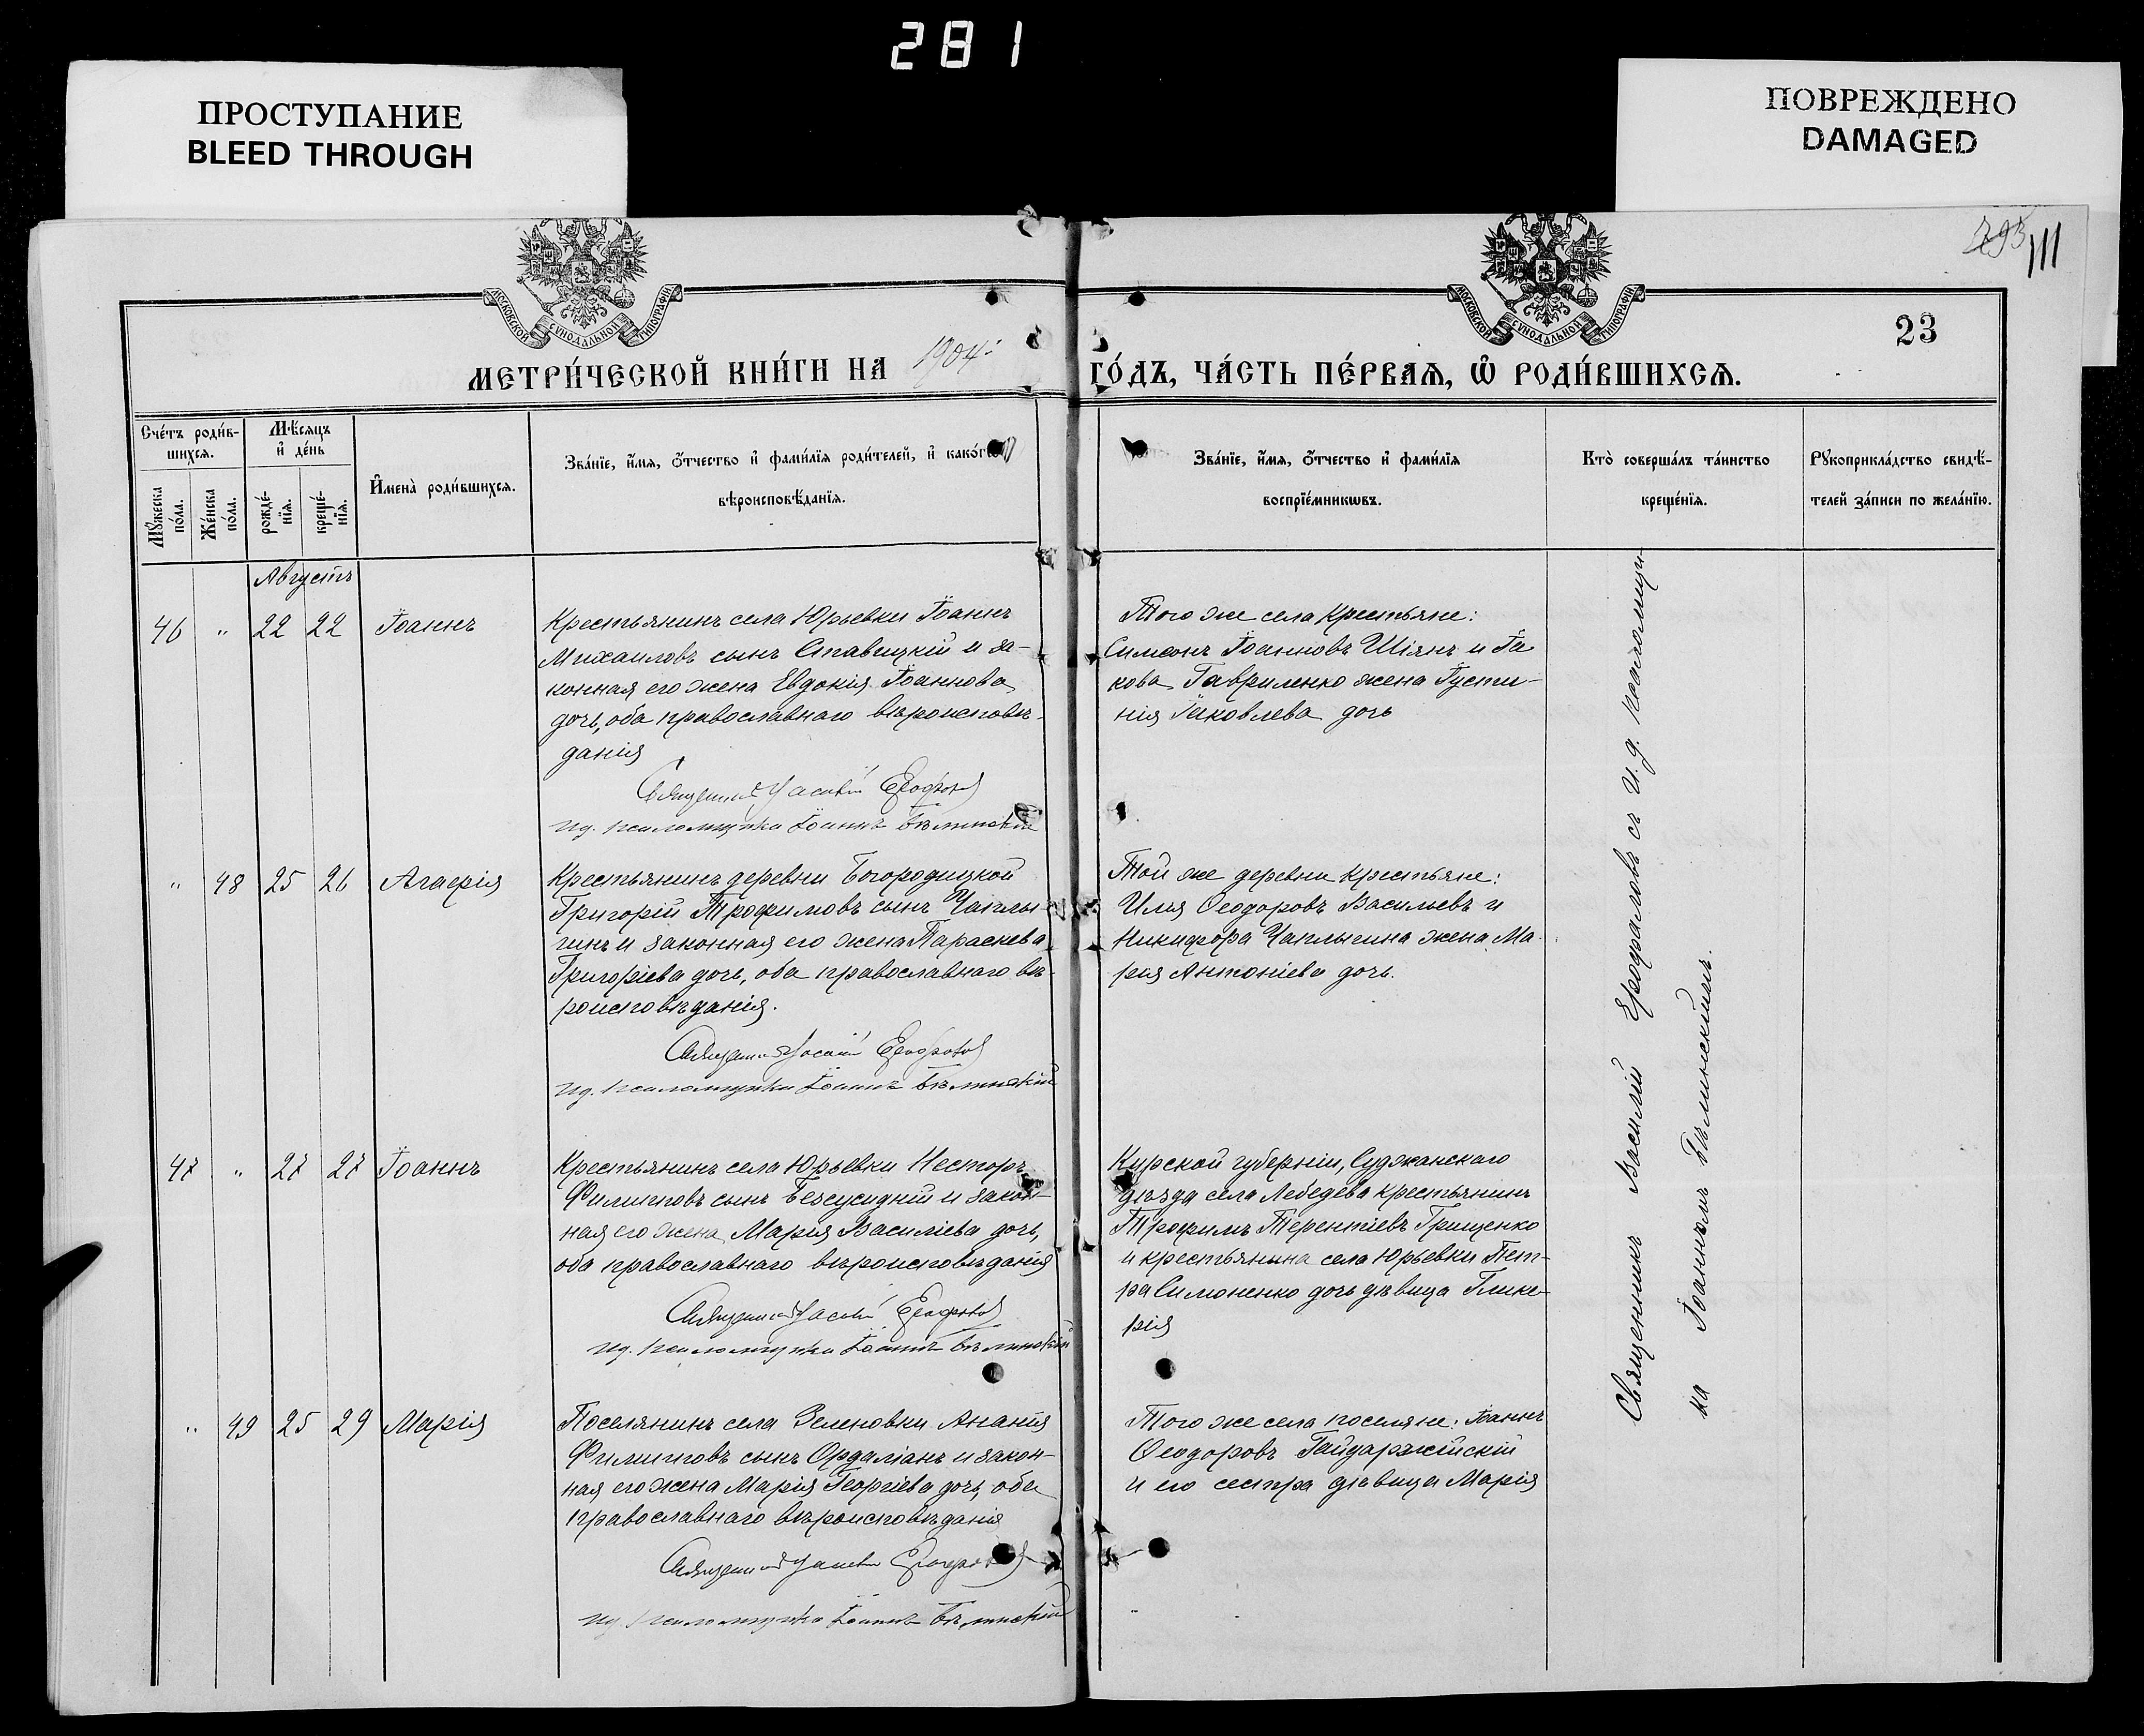 281
ПРОСТУПАНИЕ
BLEED THROUGH
ПОВРЕЖДЕНО
DAMAGED
293
111
МОСКОВСКОЙ СУНОДАЛЬНОЙ ТИПОГРАФІИ
МОСКОВСКОЙ СУНОДАЛЬНОЙ ТИПОГРАФІИ
23
МЕТРИ́ЧЕСКОЙ КНИ́ГИ НА 1904
ГО́ДЪ, ЧА́СТЬ ПЕ́РВАѦ, Ѡ҆ РОДИ́ВШИХСѦ.
Сче́тъ роди́в-
шихсѧ.
Мѣ́сѧцъ
и҆ де́нь
Мꙋ́жеска
по́ла.
Же́нска
по́ла.
рожде́-
нїѧ.
креще́-
нїѧ.
И҆мена̀ роди́вшихсѧ.
Зва́нїе, и҆́мѧ, ѻ҆́тчество и҆ фами́лїѧ роди́телей, и҆ како́гѡ
вѣроисповѣ́данїѧ.
Зва́нїе, и҆́мѧ, ѻ҆́тчество и҆ фами́лїѧ
воспрїе́мникѡвъ.
Кто̀ соверша́лъ та́инство
креще́нїѧ.
Рꙋкоприкла́дство свидѣ́-
телей за́писи по жела́нїю.
Августъ
46 " 22 22 Іоаннъ
Крестьянинъ села Юрьевки Іоаннъ
Михаиловъ сынъ Ставицкій и за-
конная его жена Евдокія Іоаннова
дочь, оба православнаго вѣроисповѣ-
данія
Священникъ Василій Ерофаловъ
ид. псаломщика Іоаннъ Бѣлинскій
Того же села крестьяне:
Симеонъ Іоанновъ Шіянъ и Іа
кова Гавриленко жена Іусти-
нія Іаковлева дочь
" 48 25 26 Агаѳія
Крестьянинъ деревни Богородицкой
Григорій Трофимовъ сынъ Чаплы-
гинъ и законная его жена Параскева
Григоріева дочь, оба православнаго вѣ-
роисповѣданія.
Священникъ Василій Ерофаловъ
ид. псаломщика Іоаннъ Бѣлинскій
Той же деревни крестьяне:
Илья Ѳеодоровъ Васильевъ и
Никифора Чаплыгина жена Ма-
рія Антоніева дочь.
47 " 27 27 Іоаннъ
Крестьянинъ села Юрьевки Несторъ
Филипповъ сынъ Безсусидній и закон-
ная его жена Марія Василіева дочь,
оба православнаго вѣроисповѣданія
Священникъ Василій Ерофаловъ
ид. псаломщика Іоаннъ Бѣлинскій
Курской губерніи, Суджанскаго
уѣзда села Лебедева крестьянинъ
Трофимъ Терентіевъ Грищенко
и крестьянина села Юрьевки Пет-
ра Симоненко дочь дѣвица Глике-
рія
" 49 25 29 Марія
Поселянинъ села Зеленовки Ананія
Филипповъ сынъ Ордаліанъ и закон-
ная его жена Марія Георгіева дочь, оба
православнаго вѣроисповѣданія
Священникъ Василій Ерофаловъ
ид. псаломщика Іоаннъ Бѣлинскій
Того же села поселяне: Іоаннъ
Ѳеодоровъ Гайдаржійскій
и его сестра дѣвица Марія
Священникъ Василій Ерофаловъ съ и. д. псаломщи-
ка Іоанномъ Бѣлинскимъ.